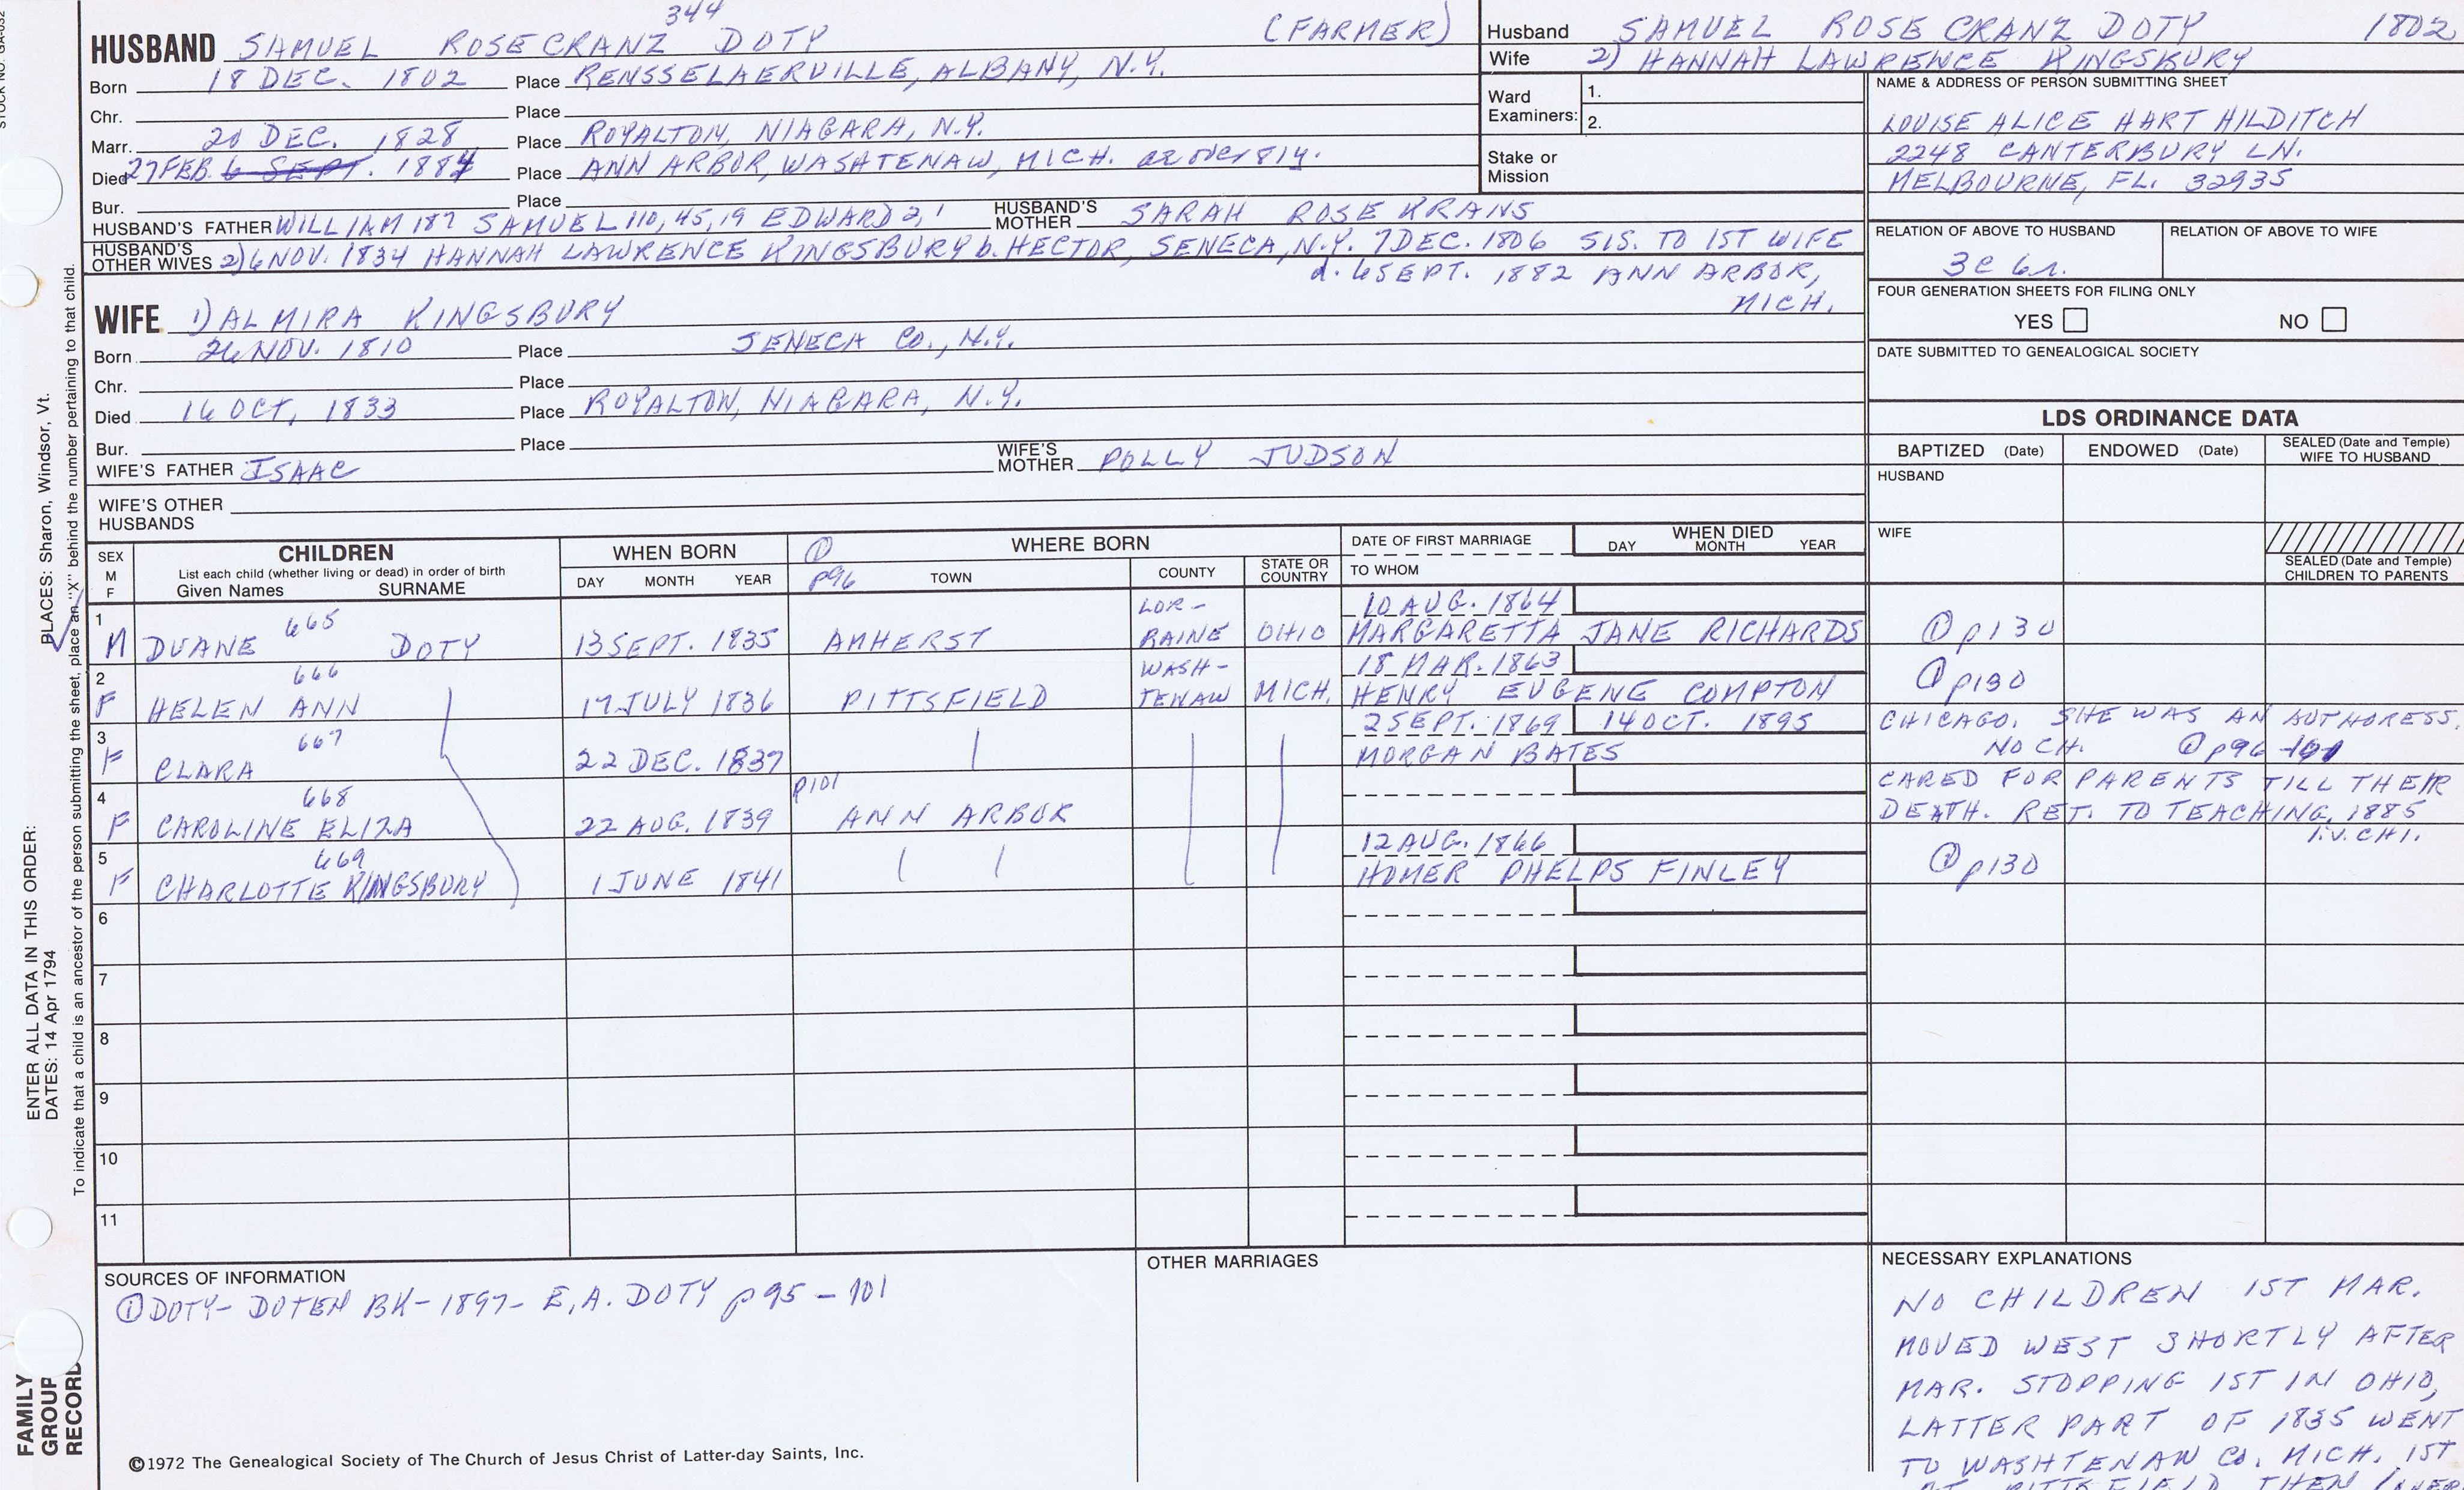 STOCK NO. GA-032
344
HUSBAND SAMUEL ROSECRANZ DOTY (FARMER)
Born 18 DEC. 1802 Place RENSSELAERVILLE, ALBANY, N.Y.
Chr. Place
Marr. 20 DEC. 1828 Place ROYALTON, NIAGARA, N.Y.
Died 27 FEB. 6 SEPT. 1884 Place ANN ARBOR, WASHTENAW, MICH. ae over 81y.
Bur. Place
HUSBAND'S FATHER WILLIAM 187 SAMUEL 110, 45, 19 EDWARD 2, 1 HUSBAND'S MOTHER SARAH ROSE KRANS
HUSBAND'S OTHER WIVES 2) 6 NOV. 1834 HANNAH LAWRENCE KINGSBURY b. HECTOR, SENECA, N.Y. 7 DEC. 1806 SIS. TO 1ST WIFE
d. 6 SEPT. 1882 ANN ARBOR,
MICH.
WIFE 1) ALMIRA KINGSBURY
Born 26 NOV. 1810 Place SENECA CO., N.Y.
Chr. Place
Died 16 OCT, 1833 Place ROYALTON, NIAGARA, N.Y.
Bur. Place
WIFE'S FATHER ISAAC WIFE'S MOTHER POLLY JUDSON
WIFE'S OTHER
HUSBANDS
Husband SAMUEL ROSE CRANZ DOTY 1802
Wife 2) HANNAH LAWRENCE KINGSBURY
Ward Examiners: 1.
2.
Stake or
Mission
NAME & ADDRESS OF PERSON SUBMITTING SHEET
LOUISE ALICE HART HILDITCH
2248 CANTERBURY LN.
MELBOURNE, FL. 32935
RELATION OF ABOVE TO HUSBAND RELATION OF ABOVE TO WIFE
3c 6r.
FOUR GENERATION SHEETS FOR FILING ONLY
YES NO
DATE SUBMITTED TO GENEALOGICAL SOCIETY
LDS ORDINANCE DATA
BAPTIZED (Date) ENDOWED (Date) SEALED (Date and Temple) WIFE TO HUSBAND
HUSBAND
WIFE
SEALED (Date and Temple)
CHILDREN TO PARENTS
SEX
M
F
CHILDREN
List each child (whether living or dead) in order of birth
Given Names SURNAME
WHEN BORN
DAY MONTH YEAR
① p96
WHERE BORN
TOWN COUNTY STATE OR COUNTRY
DATE OF FIRST MARRIAGE
TO WHOM
WHEN DIED
DAY MONTH YEAR
1 665 LOR- 10 AUG. 1864
M DUANE DOTY 13 SEPT. 1835 AMHERST RAINE OHIO MARGARETTA JANE RICHARDS ① p130
2 666 WASH- 18 MAR. 1863
F HELEN ANN 17 JULY 1836 PITTSFIELD TENAW MICH. HENRY EUGENE COMPTON ① p130
3 667 2 SEPT. 1869 14 OCT. 1895 CHICAGO. SHE WAS AN AUTHORESS.
F CLARA 22 DEC. 1837 MORGAN BATES NO CH. ① p96-101
4 668 p101 CARED FOR PARENTS TILL THEIR
F CAROLINE ELIZA 22 AUG. 1839 ANN ARBOR DEATH. RET. TO TEACHING, 1885
liv. CHI.
5 669 12 AUG. 1866
F CHARLOTTE KINGSBURY 1 JUNE 1841 HOMER PHELPS FINLEY ① p130
6
7
8
9
10
11
SOURCES OF INFORMATION
① DOTY-DOTEN BK-1897- E.A. DOTY p 95-101
OTHER MARRIAGES
NECESSARY EXPLANATIONS
NO CHILDREN 1ST MAR.
MOVED WEST SHORTLY AFTER
MAR. STOPPING 1ST IN OHIO,
LATTER PART OF 1835 WENT
TO WASHTENAW CO. MICH. 1ST
AT PITTSFIELD THEN
©1972 The Genealogical Society of The Church of Jesus Christ of Latter-day Saints, Inc.
PLACES: Sharon, Windsor, Vt.
To indicate that a child is an ancestor of the person submitting the sheet, place an "X" behind the number pertaining to that child.
ENTER ALL DATA IN THIS ORDER:
DATES: 14 Apr 1794
FAMILY
GROUP
RECORD